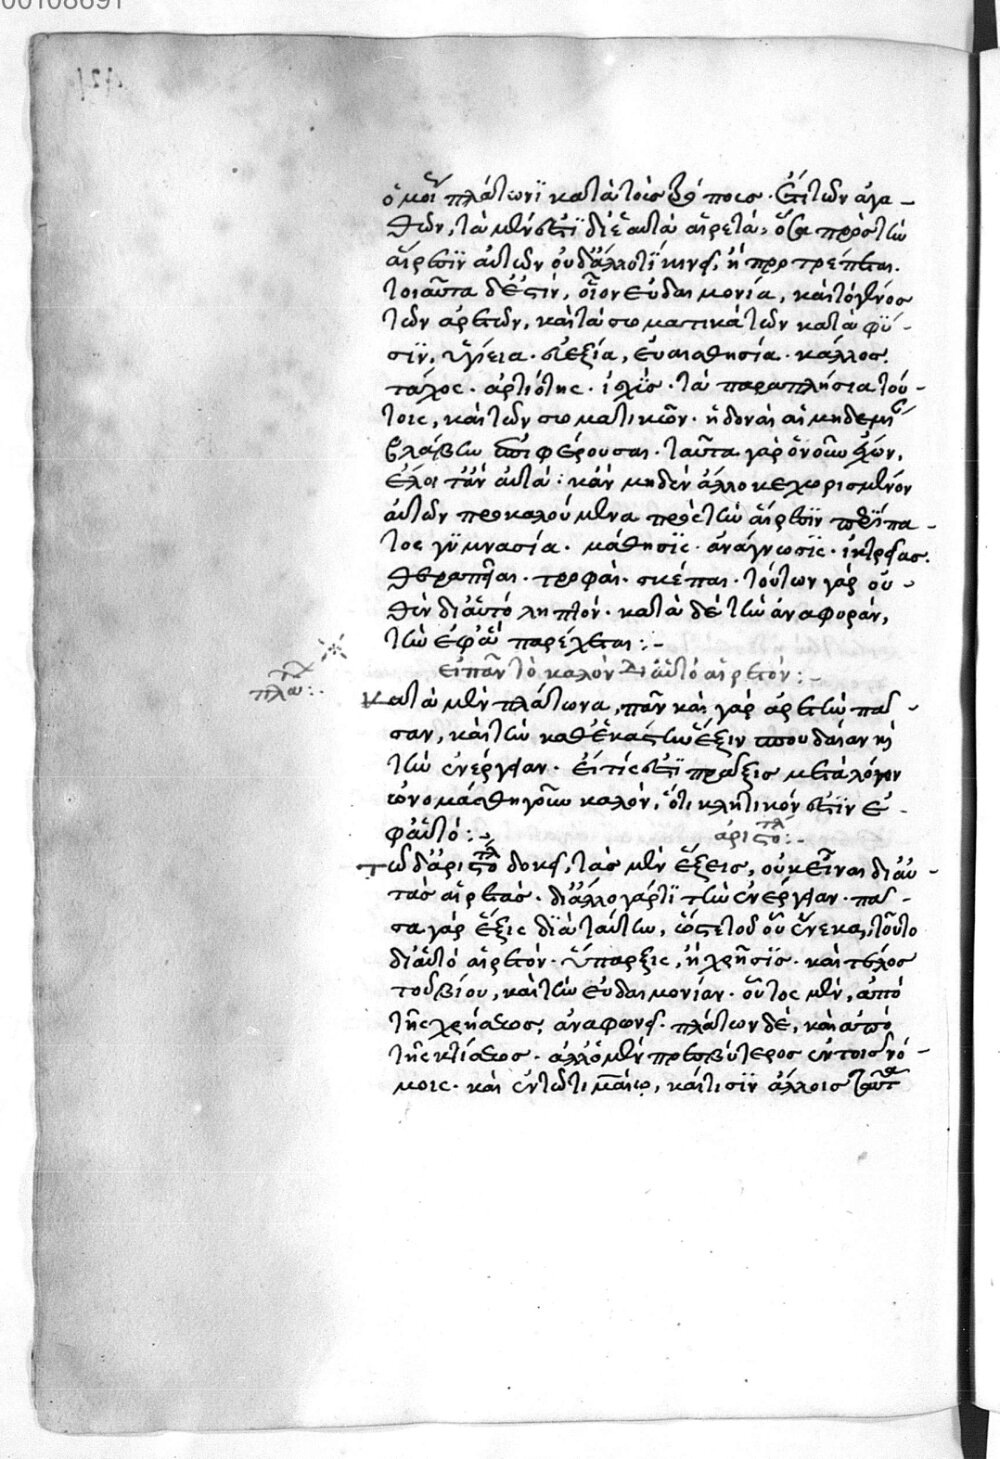 00108691
ὁμοῦ πλάτωνϊ κατὰ τοὺς τόποις· Ἔτι τῶν ἀγα-
θῶν, τὰ μὲν ἐστϊ δι' ἑαυτὰ αἱρετὰ, ὅσα πρὸς τὴν
αἵρεσϊν αὐτῶν οὐδ' ἄλλό τϊ κινεῖ, ἢ προτρέπεται.
τοιαῦτα δέ ἐστιν, οἷον εὐδαιμονία, καὶ τὸ γένος
τῶν ἀρετῶν, καὶ τὰ σωματικὰ τῶν κατὰ φύ-
σϊν, ὑγίεια· εὐεξία, εὐαισθησία· κάλλος.
τάχος· ἀρτιότης· ἰσχὺς· τὰ παραπλήσια τού-
τοις, καὶ τῶν σωματικῶν· ἡδοναὶ αἱ μηδεμίαν
βλάβην ἐπιφέρουσαι· ταῦτα γὰρ ὁ νοῦν ἔχων,
ἕλοιτ' ἂν αὐτὰ: κἂν μηδὲν ἄλλο κεχωρισμένον
αὐτῶν προκαλούμενα πρὸς τὴν αἵρεσϊν περϊπα-
τος γϋμνασία· μάθησϊς· ἀνάγνωσϊς· ἰατρείας.
θεραπεῖαι· τροφαὶ· σκέπαι· τούτων γὰρ οὐ-
θὲν δι' αὑτό ληπτόν· κατὰ δὲ τὴν ἀναφορὰν,
τὴν ἐφ' ἃ παρέχεται:-
εἰ πᾶν τὸ καλὸν δι' αὑτὸ αἱρετόν:-
πλάτω:.
Κατὰ μὲν πλάτωνα, πᾶν καὶ γὰρ ἀρετὴν πᾶ-
σαν, καὶ τὴν καθ' ἑκάστην ἕξιν σπουδαίαν καὶ
τὴν ἐνέργειαν· εἴ τίς ἐστϊ πρᾶξις μετὰ λόγου
ὠνομάσθη γοῦν καλὸν, ὅτι κλητικόν ἐστϊν ἐ-
φ' αὑτό:-
ἀριστοτλ:-
Τῷ δ' ἀριστοτλ δοκεῖ, τὰς μὲν ἕξεις, οὐκ εἶναι δι' αὑ-
τὰς αἱρετάς· δι' ἄλλο γάρ τϊ τὴν ἐνέργειαν· πᾶ-
σα γὰρ ἕξις δϊὰ ταύτην, ὥστε τὸ δ' οὗ ἕνεκα, τοῦτο
δι' αὑτὸ αἱρετόν· ὕπαρξις, ἡ χρῆσϊς· καὶ τέλος
τοῦ βίου, καὶ τὴν εὐδαιμονίαν· οὗτος μὲν, ἀπὸ
τῆς χρήσεως, ἀναφωνεῖ· πλάτων δὲ, καὶ ἀπὸ
τῆς κτίσεως· ἀλλ' ὁ μὲν πρεσβύτερος ἐν τοῖς νό-
μοις· καὶ ἐν τῶ τιμαίῳ, καί τισϊν ἄλλοις ταῦτα